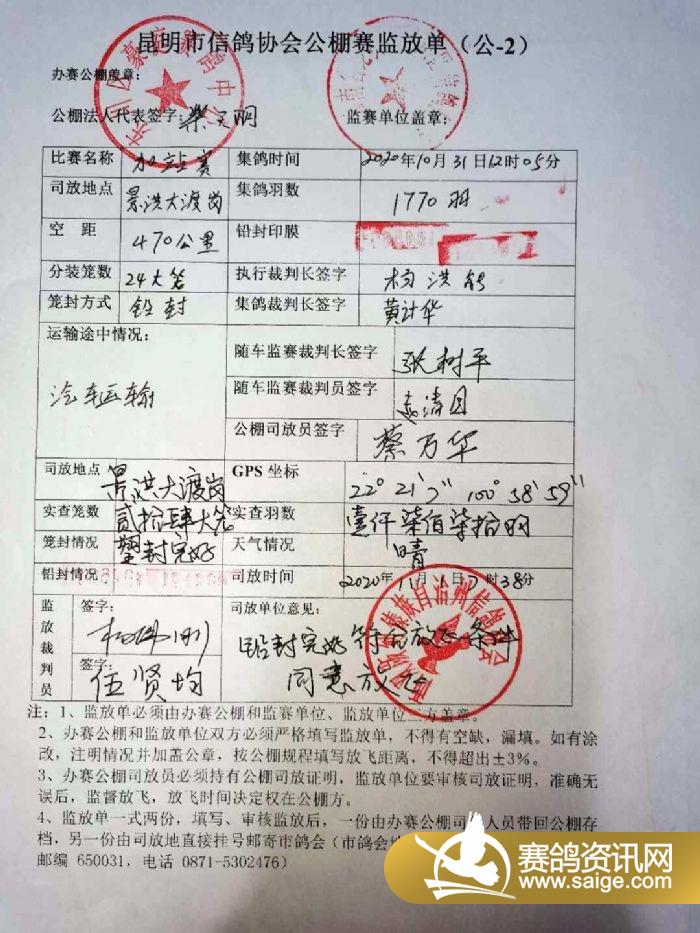 昆明市信鸽协会公棚赛监放单（公-2）
办赛公棚盖章：
公棚法人代表签字： 监赛单位盖章：
比赛名称 加站赛 集鸽时间 2020年10月31日12时05分
司放地点 景洪大渡岗 集鸽羽数 1770羽
空 距 470公里 铅封印膜
分装笼数 24大笼 执行裁判长签字
笼封方式 铅封 集鸽裁判长签字 黄计华
运输途中情况： 随车监赛裁判长签字 张树平
汽车运输 随车监赛裁判员签字
公棚司放员签字 蔡万华
司放地点 景洪大渡岗 GPS 坐标 22° 21′ 3″ 100° 58′ 59″
实查笼数 贰拾肆大笼 实查羽数 壹仟柒佰柒拾羽
笼封情况 封完好 天气情况 晴
铅封情况 司放时间 2020年11月1日7时38分
监放裁判员 签字： 司放单位意见：
铅封完好 符合放飞条件
签字： 伍贤均 同意放飞
注：1、监放单必须由办赛公棚和监赛单位、监放单位三方盖章。
2、办赛公棚和监放单位双方必须严格填写监放单，不得有空缺，漏填。如有涂
改，注明情况并加盖公章，按公棚规程填写放飞距离，不得超出±3%。
3、办赛公棚司放员必须持有公棚司放证明，监放单位要审核司放证明，准确无
误后，监督放飞，放飞时间决定权在公棚方。
4、监放单一式两份，填写、审核监放后，一份由办赛公棚司 人员带回公棚存
档，另一份由司放地直接挂号邮寄市鸽会（市鸽会
邮编 650031，电话 0871-5302476）
赛鸽资讯网
www.saige.com